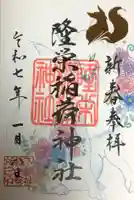 新春参拝
隆栄稲荷神社
令和七年一月 日